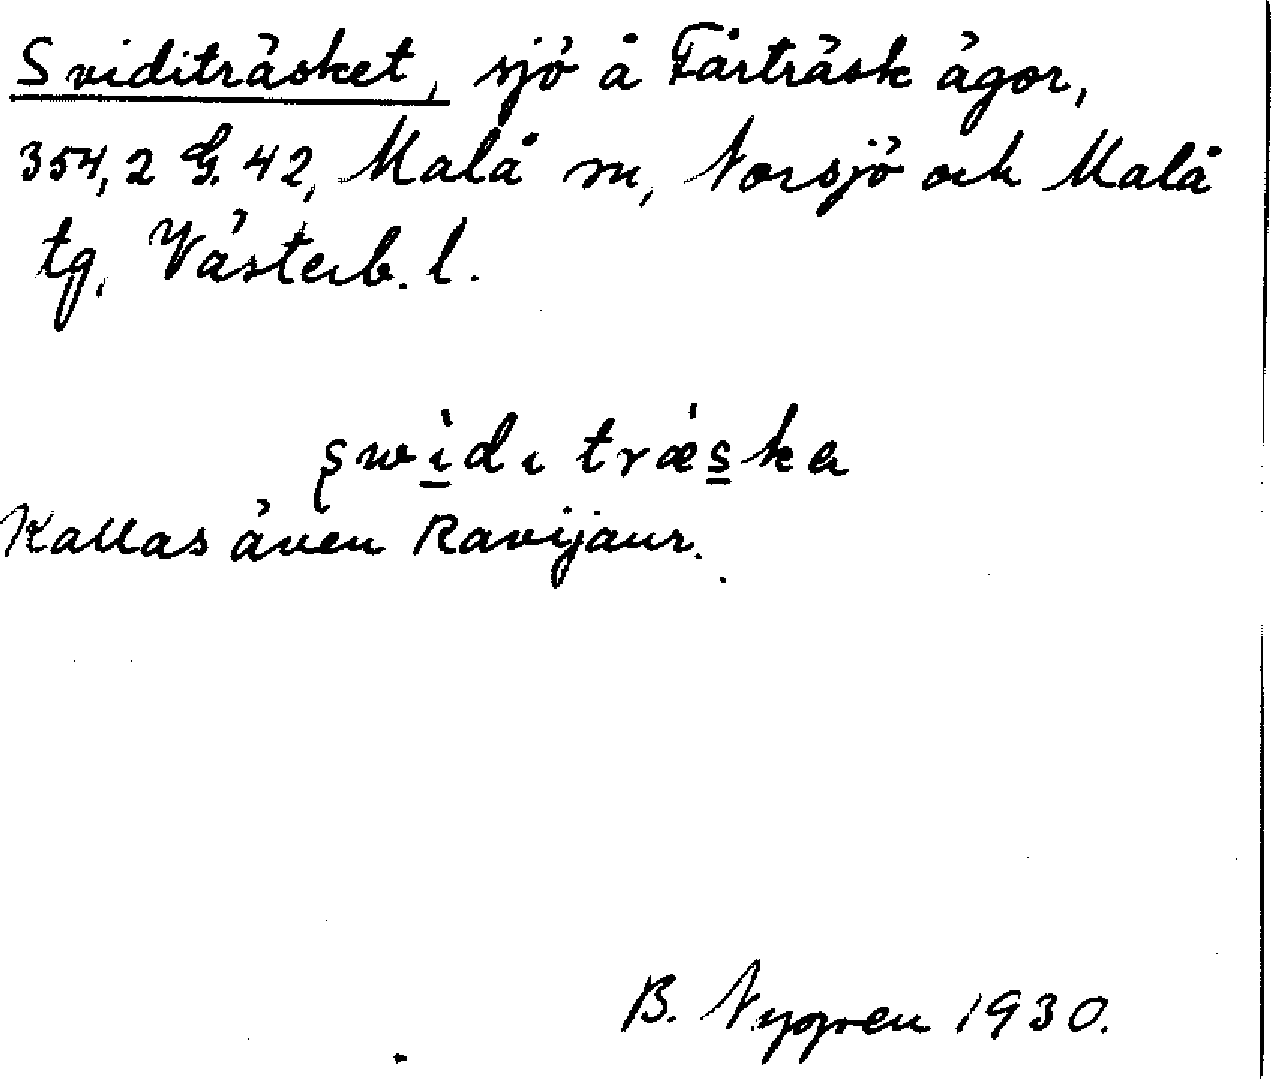 Sviditräsket, sjö å Fårträsk ägor,
354,2 G. 42, Malå sn, Norsjö och Malå
tg, Västerb. l.
swìdι træ̀ska
Kallas även Ravijaur.
B. Nygren 1930.